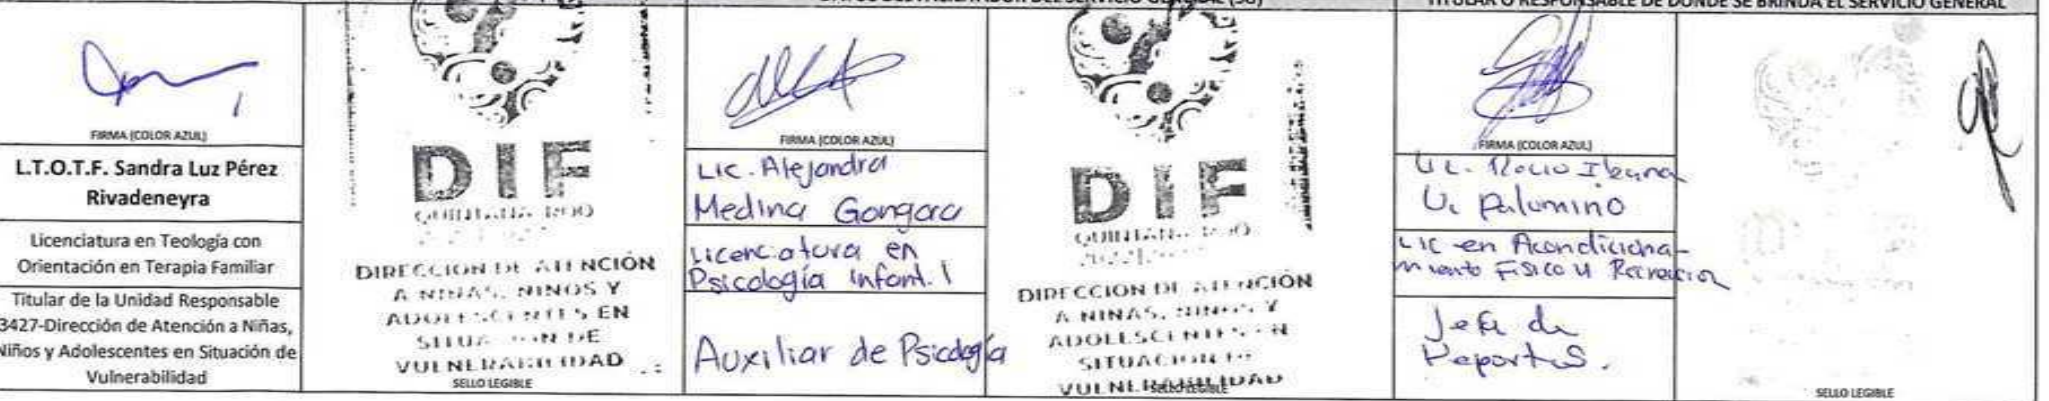 TITULAR O RESPONSABLE DE DONDE SE BRINDA EL SERVICIO GENERAL
FIRMA (COLOR AZUL)
L.T.O.T.F. Sandra Luz Pérez
Rivadeneyra
Licenciatura en Teología con
Orientación en Terapia Familiar
Titular de la Unidad Responsable
3427-Dirección de Atención a Niñas,
Niños y Adolescentes en Situación de
Vulnerabilidad
DIF
QUINTANA ROO
DIRECCIÓN DE ATENCIÓN
A NIÑAS, NIÑOS Y
ADOLESCENTES EN
SITUACIÓN DE
VULNERABILIDAD
SELLO LEGIBLE
FIRMA (COLOR AZUL)
Lic. Alejandra
Medina Gongora
Licenciatura en
Psicología Infantil
Auxiliar de Psicología
DIF
QUINTANA ROO
DIRECCION DE ATENCIÓN
A NIÑAS, NIÑOS Y
ADOLESCENTES EN
SITUACION DE
VULNERABILIDAD
SELLO LEGIBLE
FIRMA (COLOR AZUL)
Lic. Rocio
Palomino
Lic en Acondiciona-
miento Fisico y Recreacion
Jefa de
Deportes.
SELLO LEGIBLE